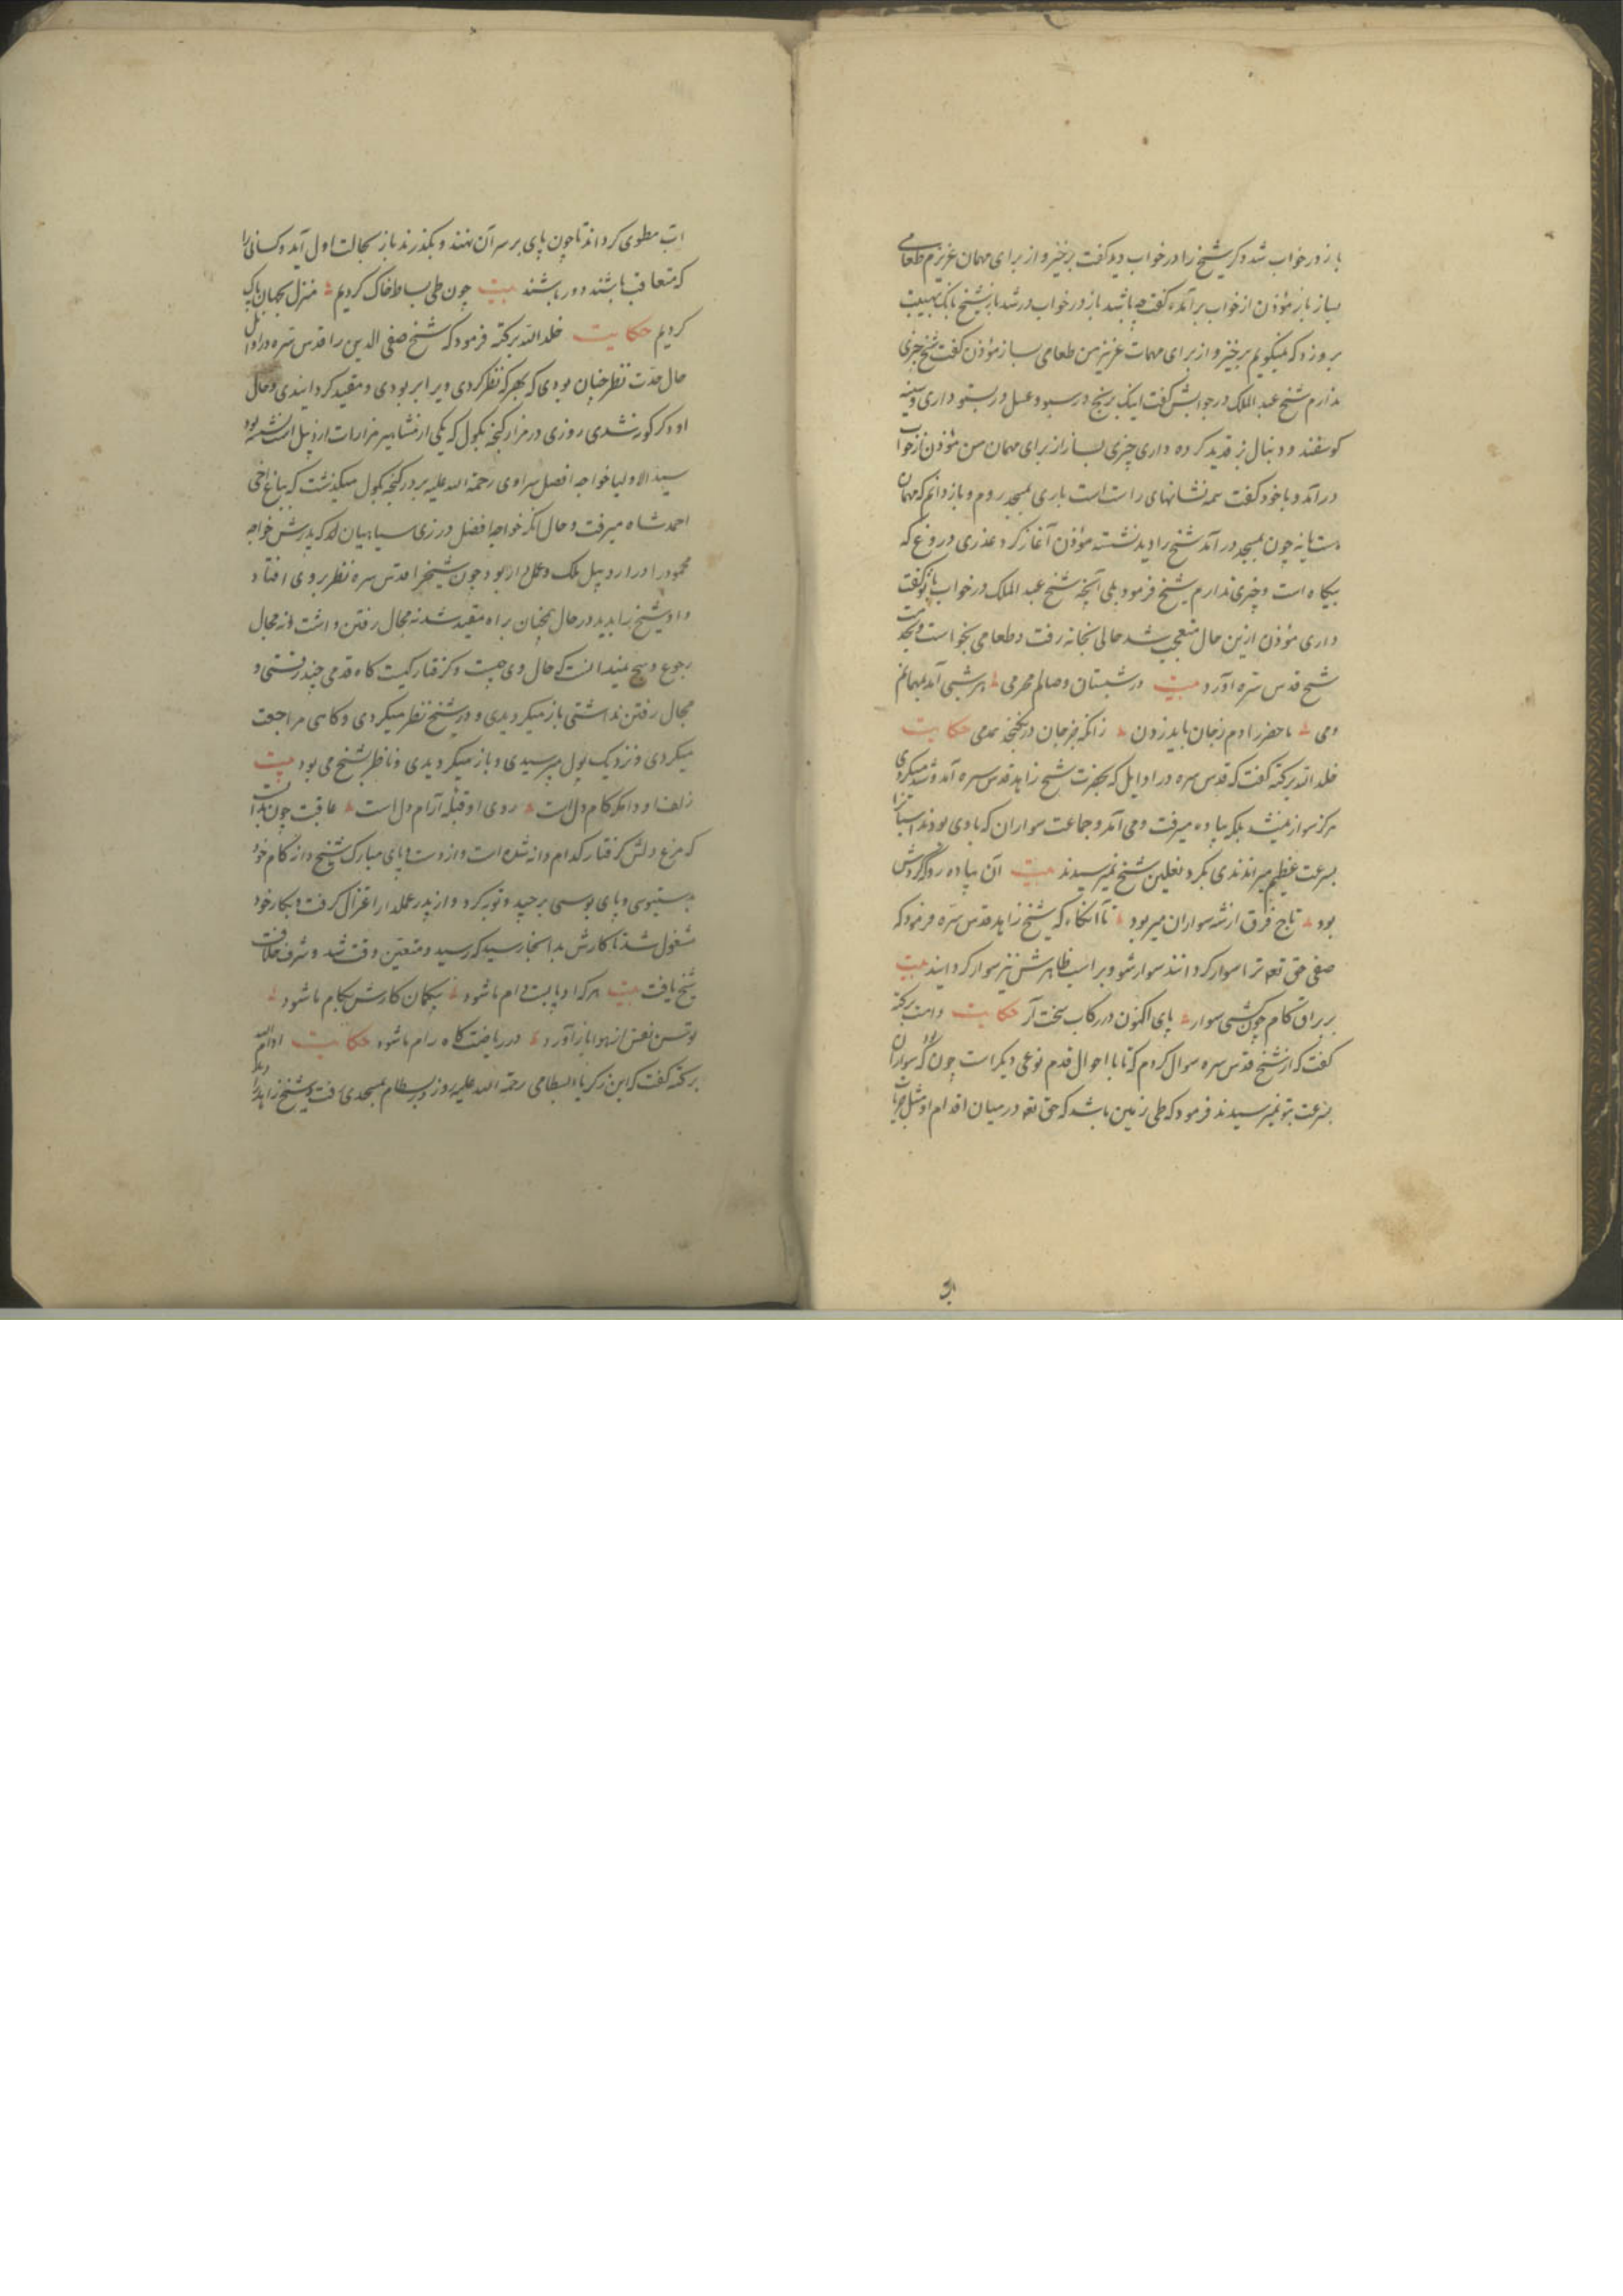 باز در خواب شد دیگر شیخ را در خواب دید گفت برخیز و از برای مهمان عزیزم طعامی
بساز باز مؤذن از خواب برآمد و گفت چه باشد باز در خواب در شد باز شیخ بانک بهیبت
برو زد که میگویم برخیز و از برای مهمان عزیز من طعامی بساز مؤذن گفت شیخ چیزی
ندارم شیخ عبد الملک در جوابش گفت اینک برنج در سبو و عسل در بستو داری و سینه
کوسفند و دنبال بز قدید کرده داری چیزی بساز از برای مهمان من مؤذن از خواب
درآمد و با خود گفت همه نشانهای راست است باری بمسجد روم و باز دانم که مهمان
هست یا نه چون بمسجد درآمد شیخ را دید نشسته مؤذن آغاز کرد عذری دروغ که
بیکاه است و چیزی ندارم شیخ فرمود بلی آنچه شیخ عبد الملک در خواب باتو گفت
داری مؤذن ازین حال متعجب شد حالی بخانه رفت و طعامی بخواست و بخدمت
شیخ قدس سره آورد بیت در شبستان وصالم محرمی هر شبی آید بمهمانم
دمی ماحضر را دم زجان باید زدن زانکه جز جان در نکنجد همدمی حکایت
خلد الله برکته گفت که قدس سره در اوایل که بحضرت شیخ زاهد قدس سره آمد و شد میکردی
هرگز سوار نمیشد بلکه پیاده میرفت و می آمد و جماعت سواران که با وی بودند اسبانرا
بسرعت عظیم میراندندی بگرد نعلین شیخ نمیرسیدند بیت آن پیاده رو که گردش
بود تاج فرق از شه سواران میربود تا آنگاه که شیخ زاهد قدس سره فرمود که
صفی حق تعه ترا سوار کردانند سوار شو و بر اسب ظاهرش نیز سوار کردانید بیت
بر براق کام چون کشتی سوار پای اکنون در رکاب سخت آر حکایت دامت برکته
گفت که از شیخ قدس سره سوال کردم که تا با احوال قدم نوعی دیگر است چون که سواران
بسرعت بتو نمیرسیدند فرمود که طی زمین باشد که حق تعه در میان اقدام او مثل
اب مطوی کرداند تا چون پای بر سر آن نهند و بگذرند باز بحالت اول آید و کسانی را
که متعاقب باشند دور باشند بیت چون طی بساط خاک کردیم منزل بجهان پاک
کردیم حکایت خلد الله برکته فرمود که شیخ صفی الدین را قدس سره در اوایل
حال حدت نظر چنان بودی که بهر که نظر کردی ویرا بر بودی و مقید کردانیدی و حال
او دگرگون شدی روزی در مزار کنجه بکول که یکی از مشاهیر مزارات اردبیل است نشسته بود
سید الاولیا خواجه افضل سراوی رحمة الله علیه بر در کنجه بکول میگذشت که بباغ اخی
احمد شاه میرفت و حال آنکه خواجه افضل در زی سپاهیان بود که پدرش خواجه
محمود را در اردبیل ملک و عمل دار بود چون شیخرا قدس سره نظر بر وی افتاد
و او شیخ را بدید در حال همچنان براه مقید شد نه مجال رفتن داشت و نه مجال
رجوع و هیچ نمیدانست که حال وی چیست و گرفتار کیست کاه قدمی چند رفتی و
مجال رفتن نداشتی باز میگردیدی و در شیخ نظر میکردی و کاهی مراجعت
میکردی و نزدیک پول میرسیدی و باز میگردیدی و ناظر شیخ می بود بیت
زلف او دامگه کام دل است روی او قبله آرام دل است عاقبت چون بدانست
که مرغ دلش گرفتار کدام دانه شده است و از دست و پای مبارک شیخ دانه کام خود
بدستبوسی و پای بوسی برچید و توبه کرد و از پدر عملدار اعتزال گرفت و بکار خود
مشغول شد تا کارش بدانجا رسید که رسید و متعین وقت شد و شرف خلافت
شیخ یافت بیت هر که او پابست دام ما شود بیگمان کارش بکام ما شود
توسن نفس از هوا باز آورد در ریاضت کاه رام ما شود حکایت ادام الله
برکته گفت که ابن زکریا البسطامی رحمة الله علیه روزی در بسطام بمسجدی رفت و شیخ زاهد را دید